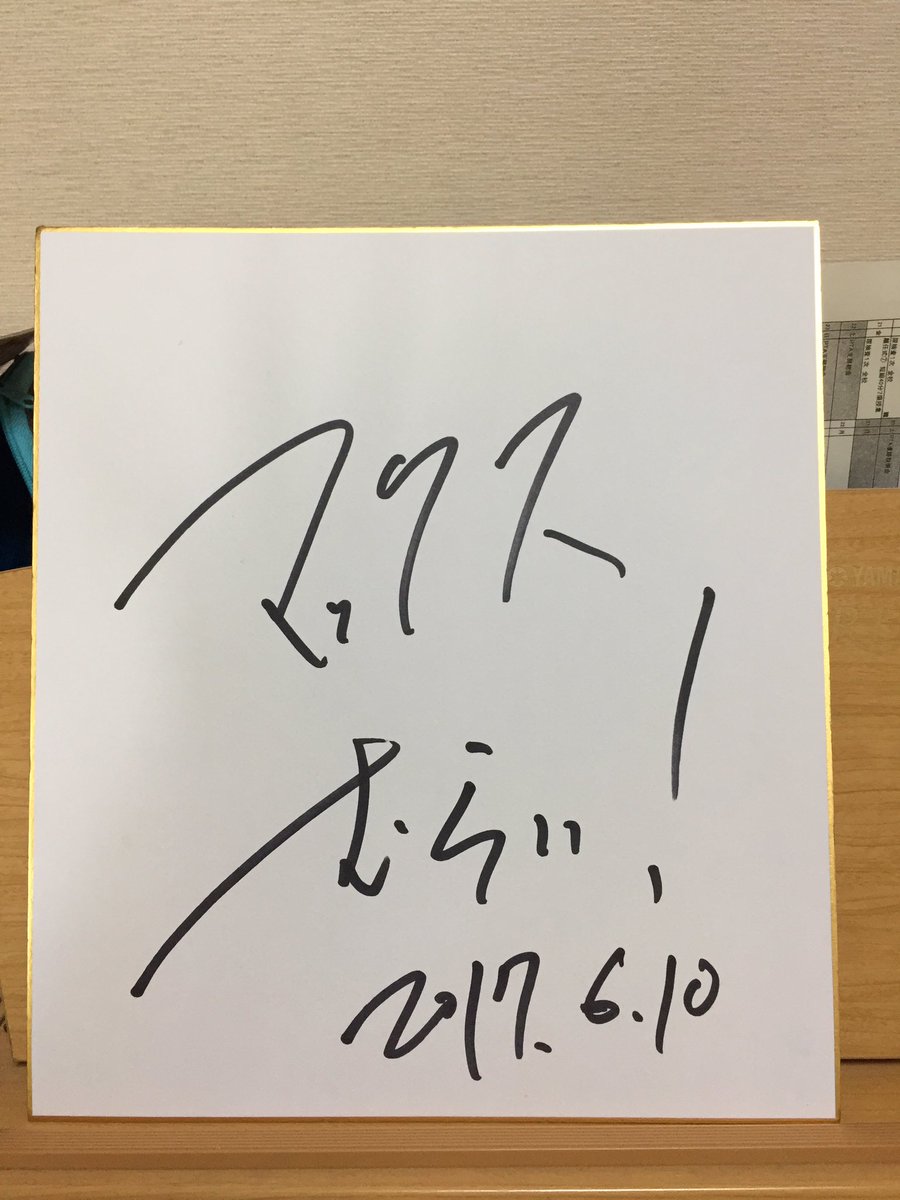 マックス
むらい!
2017.6.10